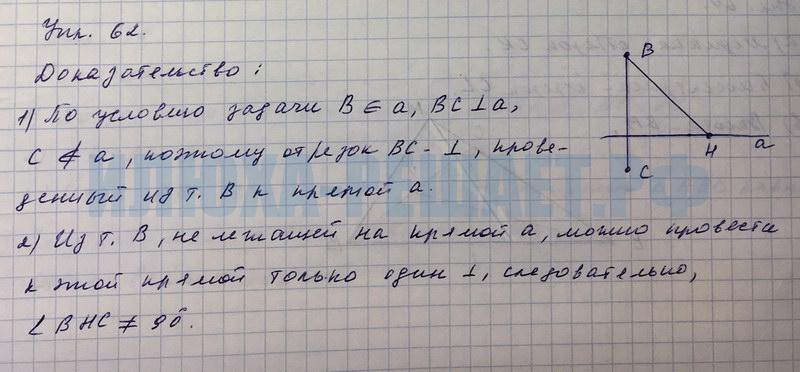 Упр. 62.
Доказательство:
1) По условию задачи B ∈ a, BC ⊥ a,
C ∉ a, поэтому отрезок BC - ⊥, прове-
денный из т. B к прямой a.
2) Из т. B, не лежащей на прямой a, можно провести
к этой прямой только один ⊥, следовательно,
∠ BHC ≠ 90°.
B
H
a
C
ИЛЮХА-РЕШАЕТ.РФ